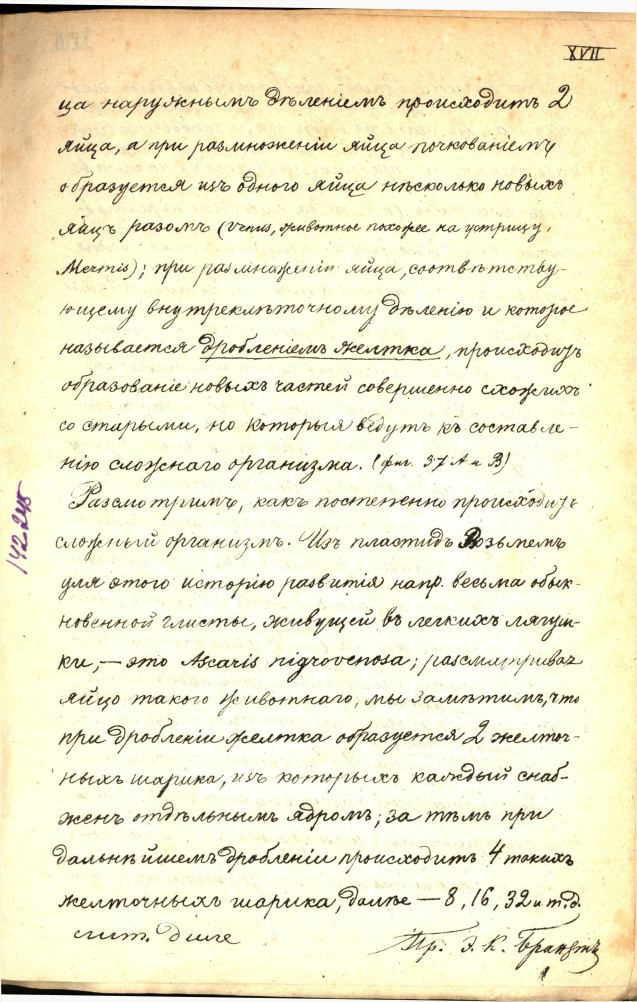 XVII
ца наружнымъ дѣленіемъ происходитъ 2
яйца, а при размноженіи яйца почкованіемъ
образуется изъ одного яйца нѣсколько новыхъ
яицъ разомъ (Venus, животное похожее на устрицу,
Mermis); при размноженіи яйца, соотвѣтству-
ющему внутреклѣточному дѣленію и которое
называется дробленіемъ желтка, происходитъ
образованіе новыхъ частей совершенно схожихъ
со старыми, но которыя ведутъ къ составле-
нію сложнаго организма. (фиг. 37 А и В)
Разсмотримъ, какъ постепенно происходитъ
сложный организмъ. Изъ пластидъ Возьмемъ
для этого исторію развитія напр. весьма обык-
новенной глисты, живущей въ легкихъ лягуш-
ки, — это Ascaris nigrovenosa; разсматривая
яйцо такого животнаго, мы замѣтимъ, что
при дробленіи желтка образуется 2 желточ-
ныхъ шарика, изъ которыхъ каждый снаб-
женъ отдѣльнымъ ядромъ; за тѣмъ при
дальнѣйшемъ дробленіи происходитъ 4 такихъ
желточныхъ шарика, далѣе — 8, 16, 32 и т.д.
лит.
Пр. Э. К. Брандтъ
142245